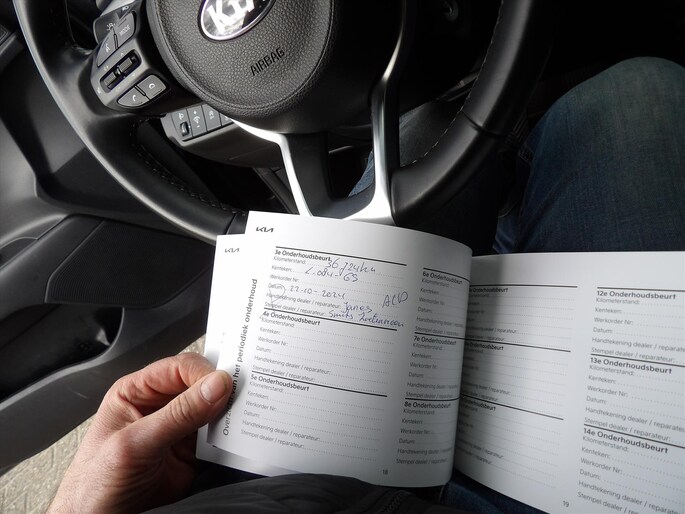 KIA
AIRBAG
KIA
KIA
Overzicht van het periodiek onderhoud
3e Onderhoudsbeurt
Kilometerstand: 36.724km
Kenteken:
Werkorder Nr:
Datum: 22-10-2024
Handtekening dealer / reparateur:
Stempel dealer / reparateur: Smits
4e Onderhoudsbeurt
Kilometerstand:
Kenteken:
Werkorder Nr:
Datum:
Handtekening dealer / reparateur:
Stempel dealer / reparateur:
5e Onderhoudsbeurt
Kilometerstand:
Kenteken:
Werkorder Nr:
Datum:
Handtekening dealer / reparateur:
Stempel dealer / reparateur:
6e Onderhoudsbeurt
Kilometerstand:
Kenteken:
Werkorder Nr:
Datum:
Handtekening
Stempel dealer /
7e Onderhoudsbeurt
Kilometerstand:
Kenteken:
Werkorder Nr:
Datum:
Handtekening dealer
Stempel dealer / re
8e Onderhoudsbeurt
Kilometerstand:
Kenteken:
Werkorder Nr:
Datum:
Handtekening dealer / r
Stempel dealer / reparateur
18
12e Onderhoudsbeurt
Kilometerstand:
Kenteken:
Werkorder Nr:
Datum:
Handtekening dealer / reparateur:
Stempel dealer / reparateur:
13e Onderhoudsbeurt
Kilometerstand:
Kenteken:
Werkorder Nr:
Datum:
Handtekening dealer / reparateur:
Stempel dealer / reparateur:
14e Onderhoudsbeurt
Kilometerstand:
Kenteken:
Werkorder Nr:
Datum:
Handtekening dealer / reparateur:
Stempel dealer / reparateur:
19